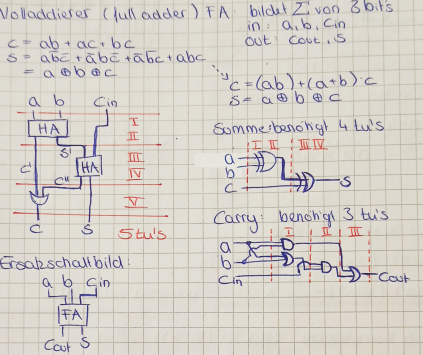 Volladdierer (full adder) FA: bildet Σ von 3 bits
in: a, b, Cin
out: Cout, S
c = ab + ac + bc
s = ab̄c̄ + ābc̄ + āb̄c + abc
= a ⊕ b ⊕ c
c = (ab) + (a+b)·c
s = a ⊕ b ⊕ c
a b Cin
HA
I
II
S'
C'
HA
III
C''
IV
V
C S
5tu's
Summe: benötigt 4 tu's
I II III IV
a
b
c
S
Carry: benötigt 3 tu's
I II III
a
b
Cin
Cout
Ersatzschaltbild:
a b Cin
FA
Cout S